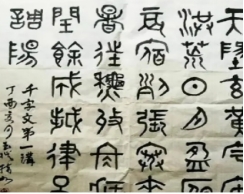 天地玄黃宇宙
洪荒日月盈昃
辰宿列張寒來
暑往秋收冬藏
閏餘成歲律呂
調陽
千字文第一講
丁酉